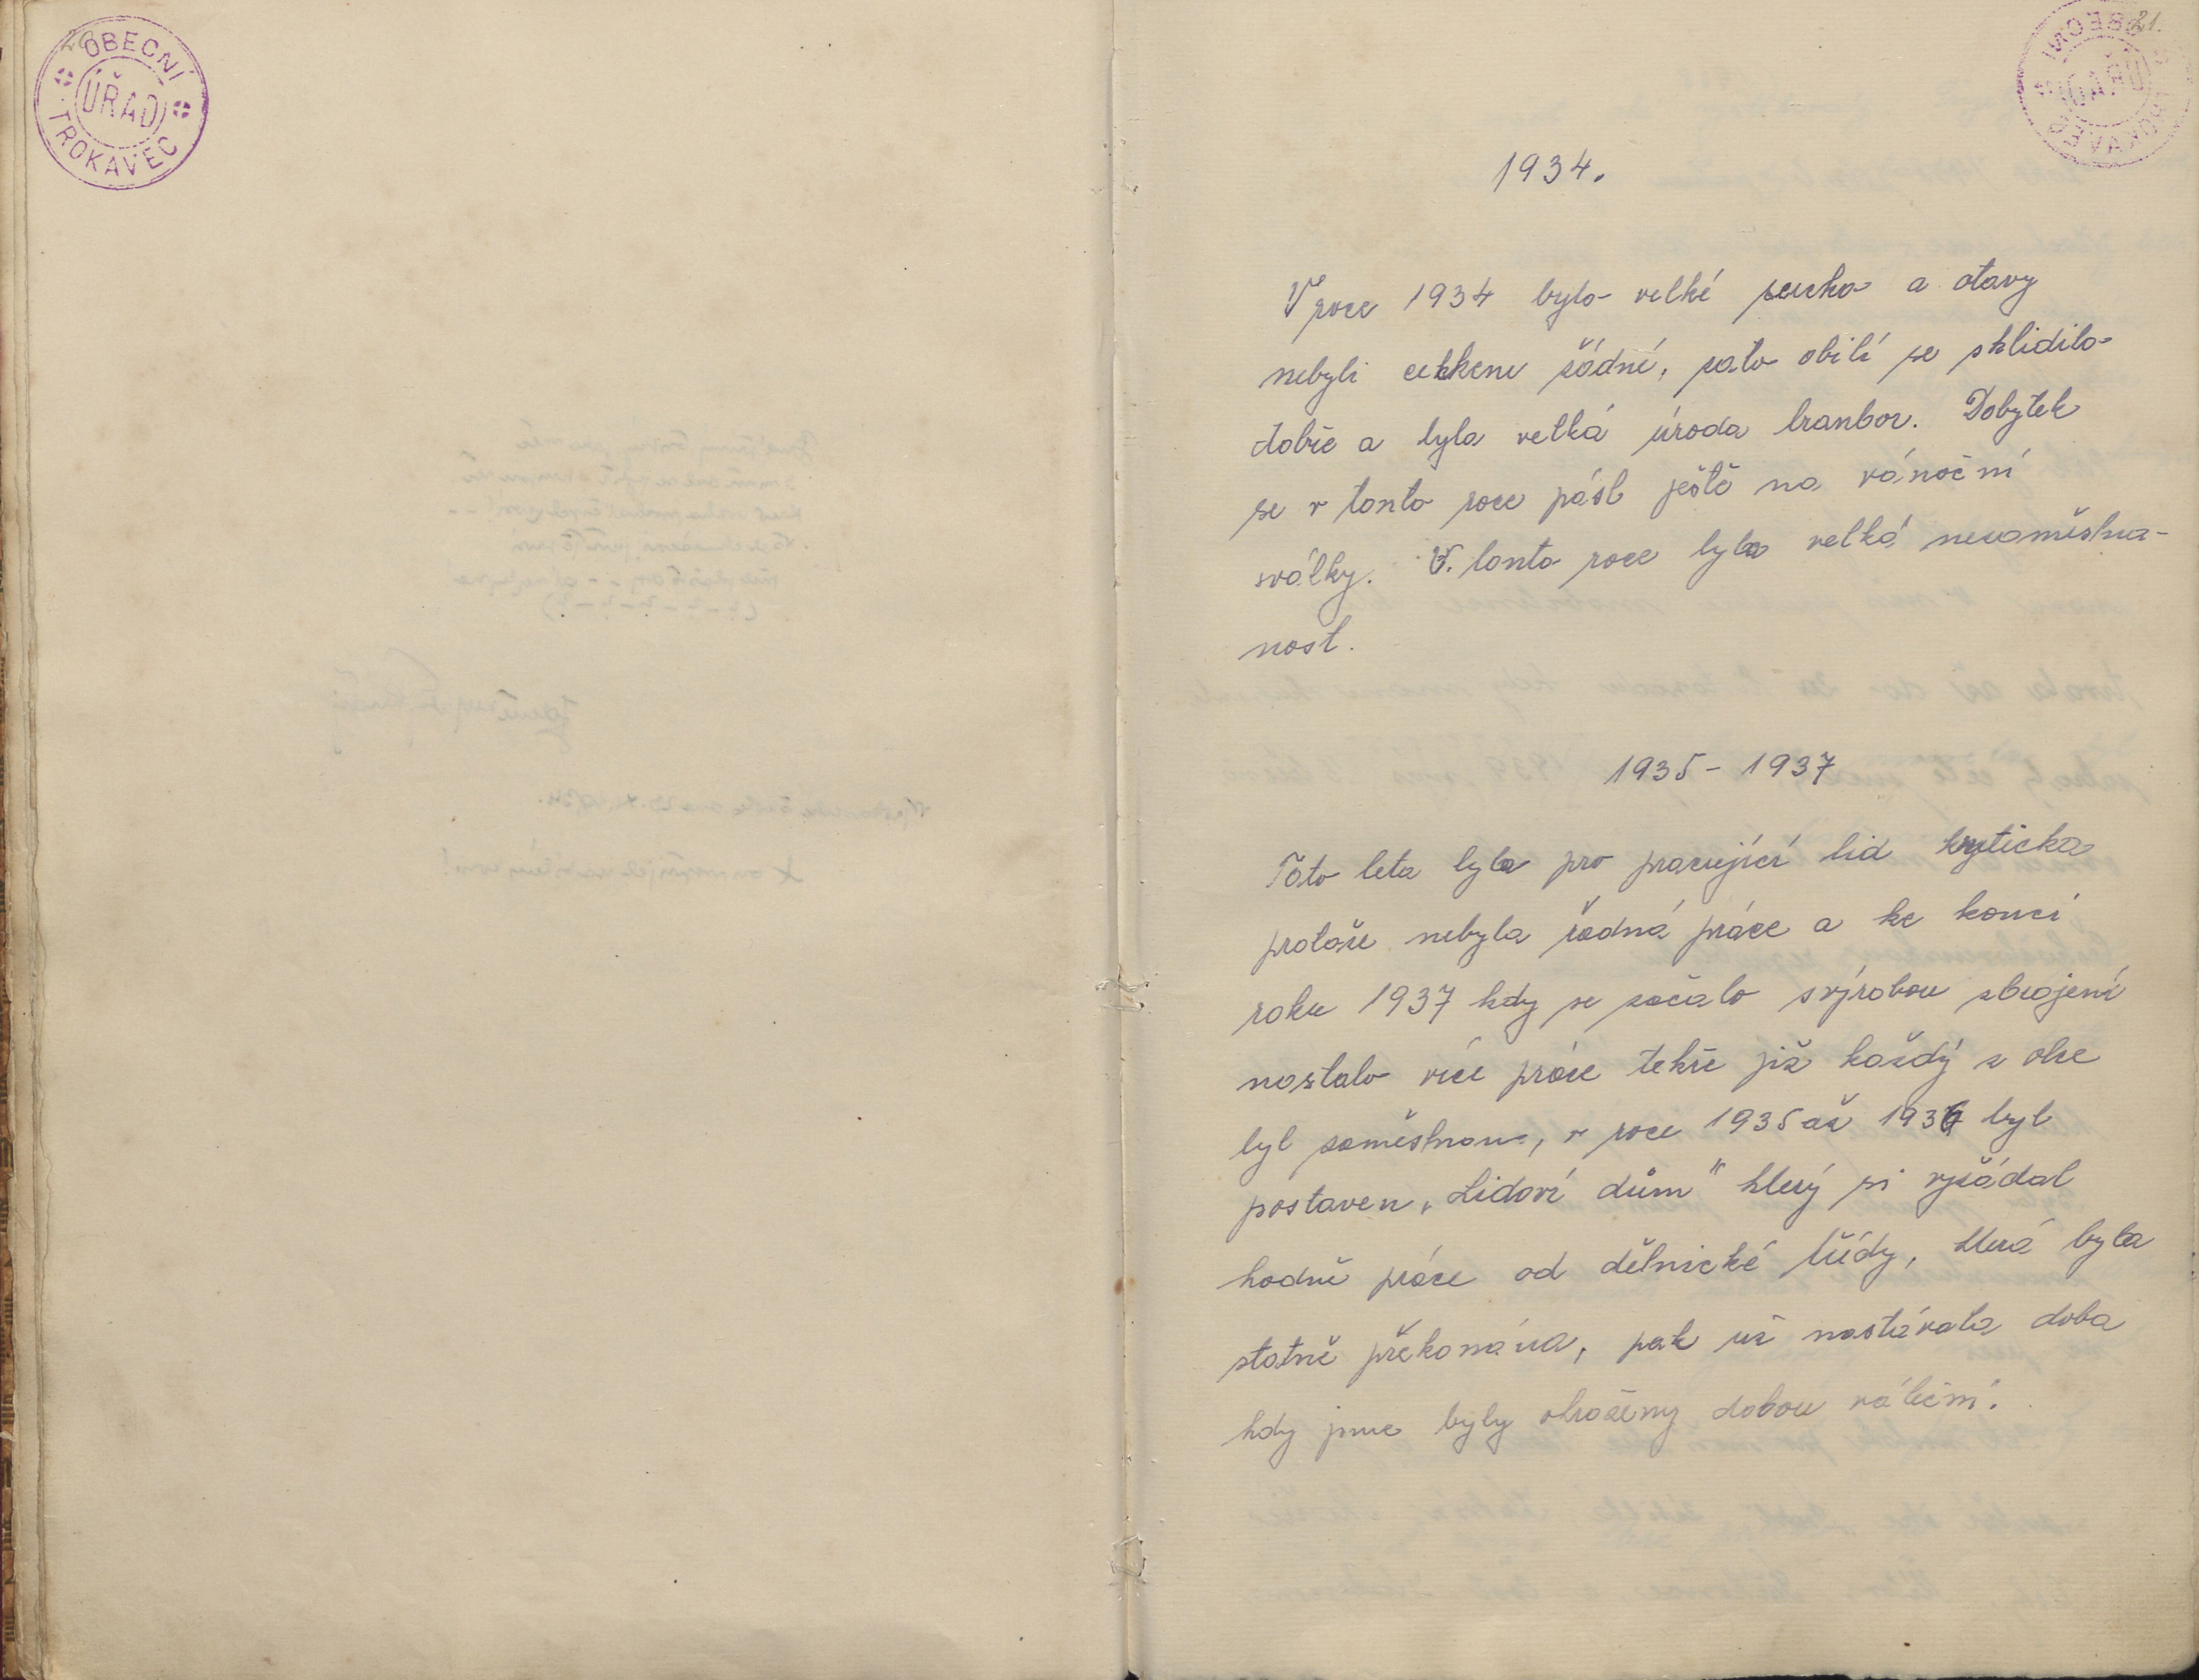 20
OBECNÍ
ÚŘAD
TROKAVEC
21.
OBECNÍ
ÚŘAD
TROKAVEC
1934.
V roce 1934 bylo velké sucho a otavy
nebyli celkem žádné, zato obilí se sklidilo
dobře a byla velká úroda brambor. Dobytek
se v tomto roce pásl ještě na vánoční
svátky. V. tomto roce byla velká nezaměstna-
nost.
1935 - 1937
Tato leta byla pro pracující lid kryticka
protože nebyla řádná práce a ke konci
roku 1937 kdy se začalo sýrobou zbrojení
nastalo více práce tekže již každý z obce
byl zaměstnane, v roce 1935 až 1936 byl
postaven „Lidoví dům" který si vyžádal
hodně práce od dělnické třídy, která byla
statně překonána, pak už nastávala doba
kdy jsme byly ohroženy dobou váleční.